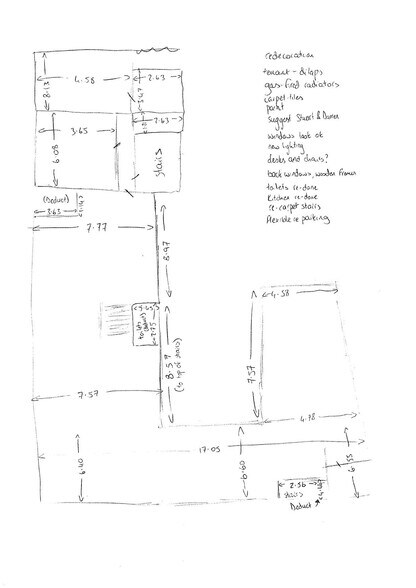 redecoration
tenant - dilaps
gas-fired radiators
carpet tiles
paint
suggest
windows look ok
new lighting
desks and chairs?
back windows, wooden frames
toilets re-done
Kitchen re-done
re-carpet stairs
flexible re parking
4.58
2.63
8.13
2.63
3.65
6.08
stairs
(Deduct)
3.63
7.77
8.97
toilets
(deduct)
8.59
(to top of stairs)
7.57
4.58
7.57
4.78
17.05
6.40
6.60
2.56
stairs
Deduct